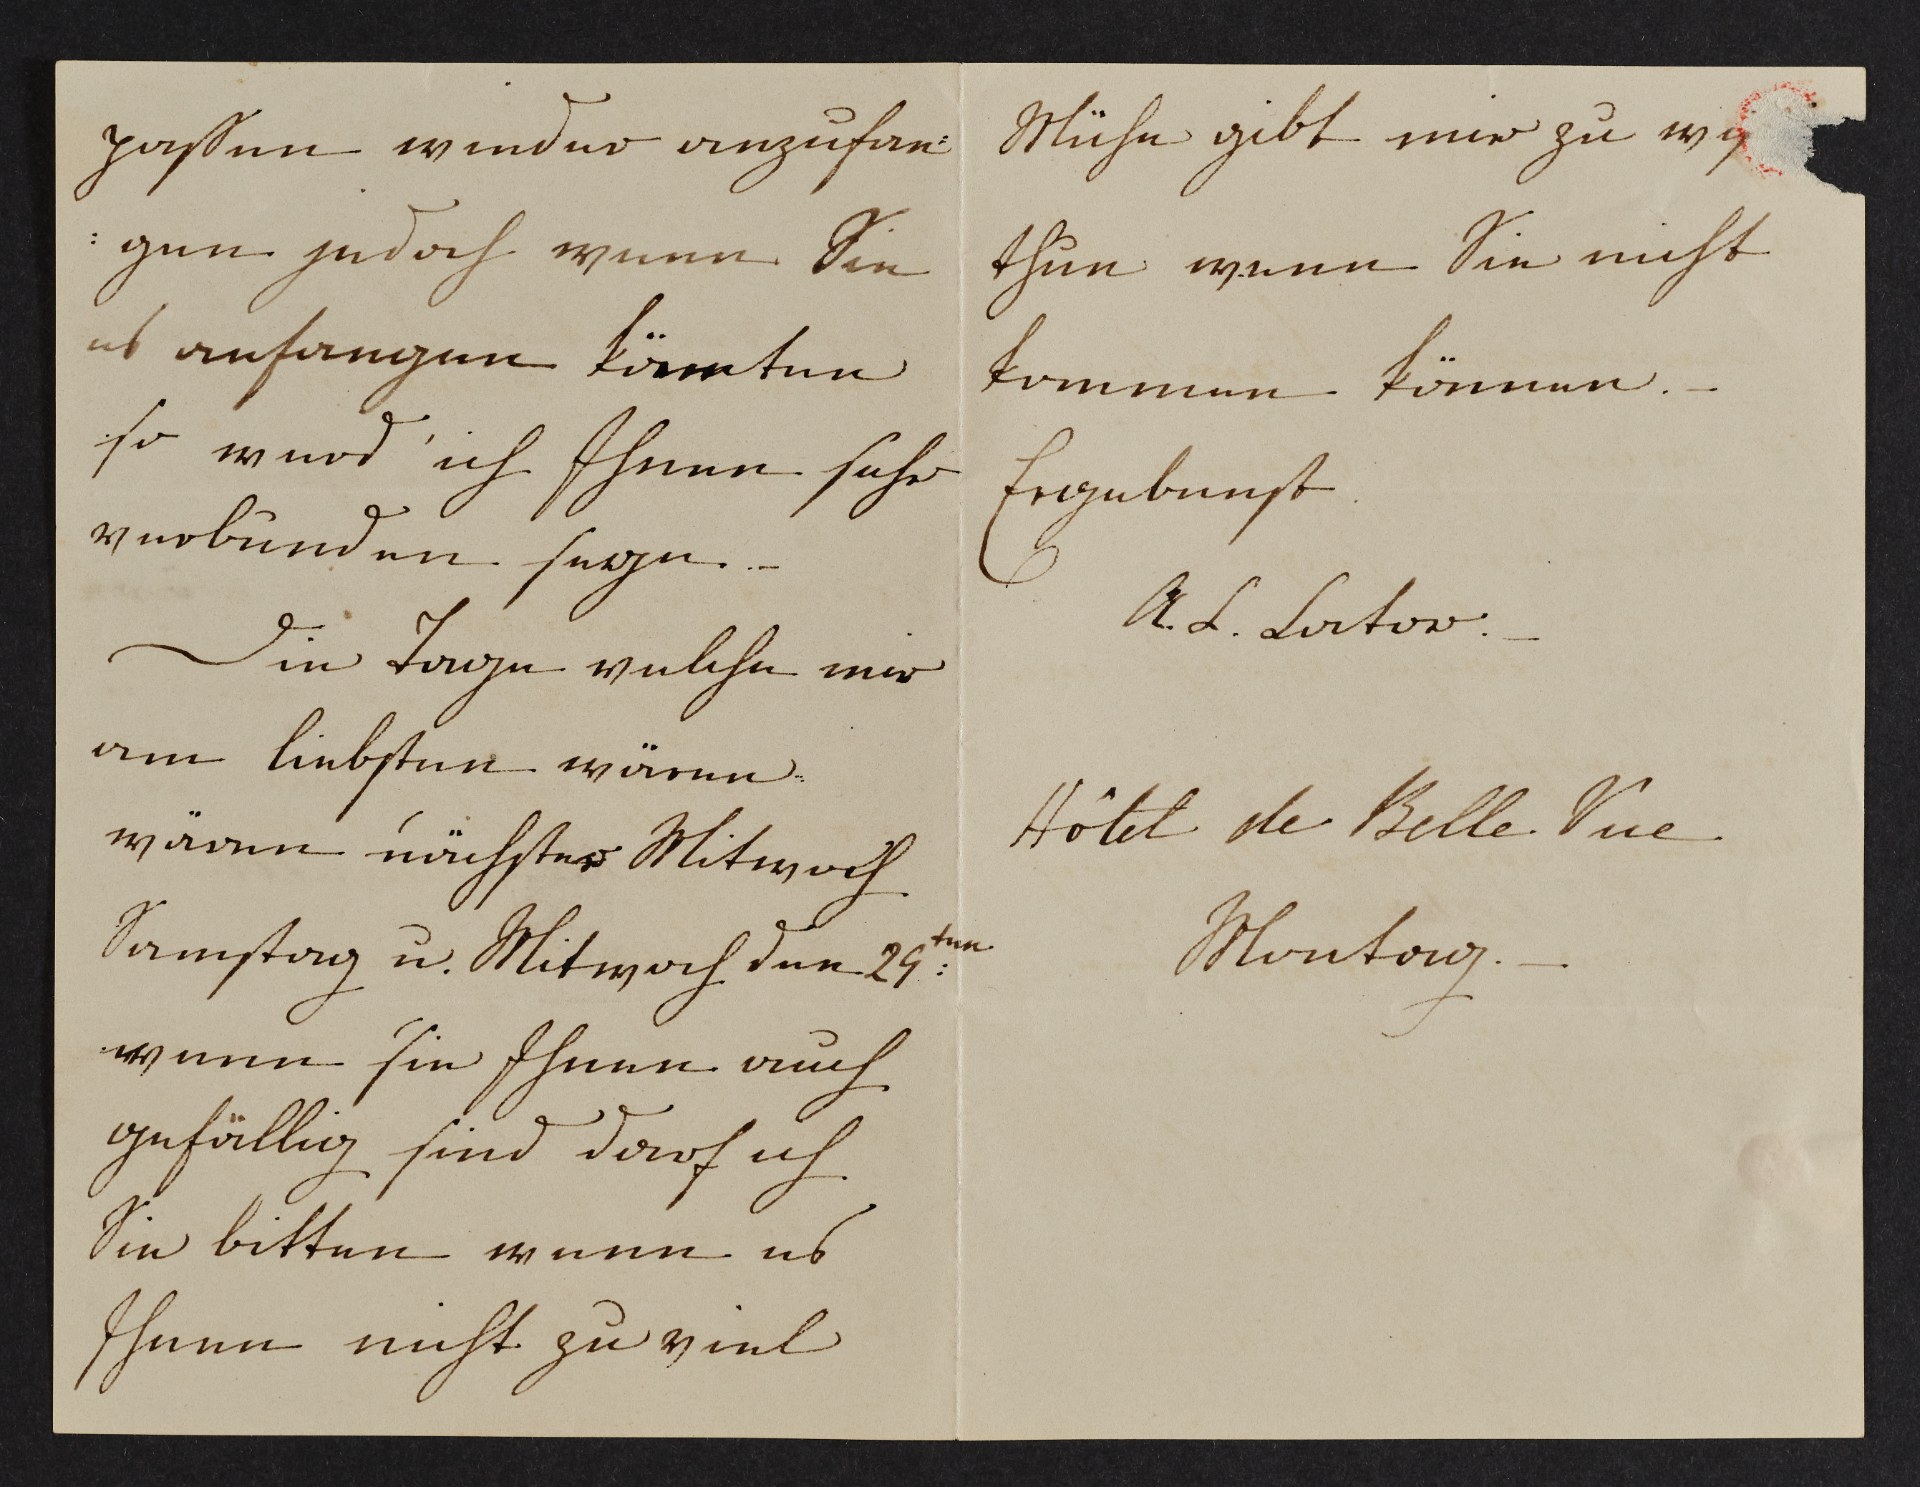 passen wieder anzufan:
: gen jedoch wenn Sie
es anfangen könnten
so werd' ich Ihnen sehr
verbunden seyn. –
Die Tage welche mir
am liebsten wären:
wären nächster Mitwoch
Samstag u. Mitwoch den 29ten:
wenn sie Ihnen auch
gefällig sind darf ich
Sie bitten wenn es
Ihnen nicht zu viel
Mühe gibt mir zu
thun wenn Sie nicht
kommen können. –
Ergebenst
A. L. Lator. –
Hôtel de Belle Vue
Montag. –